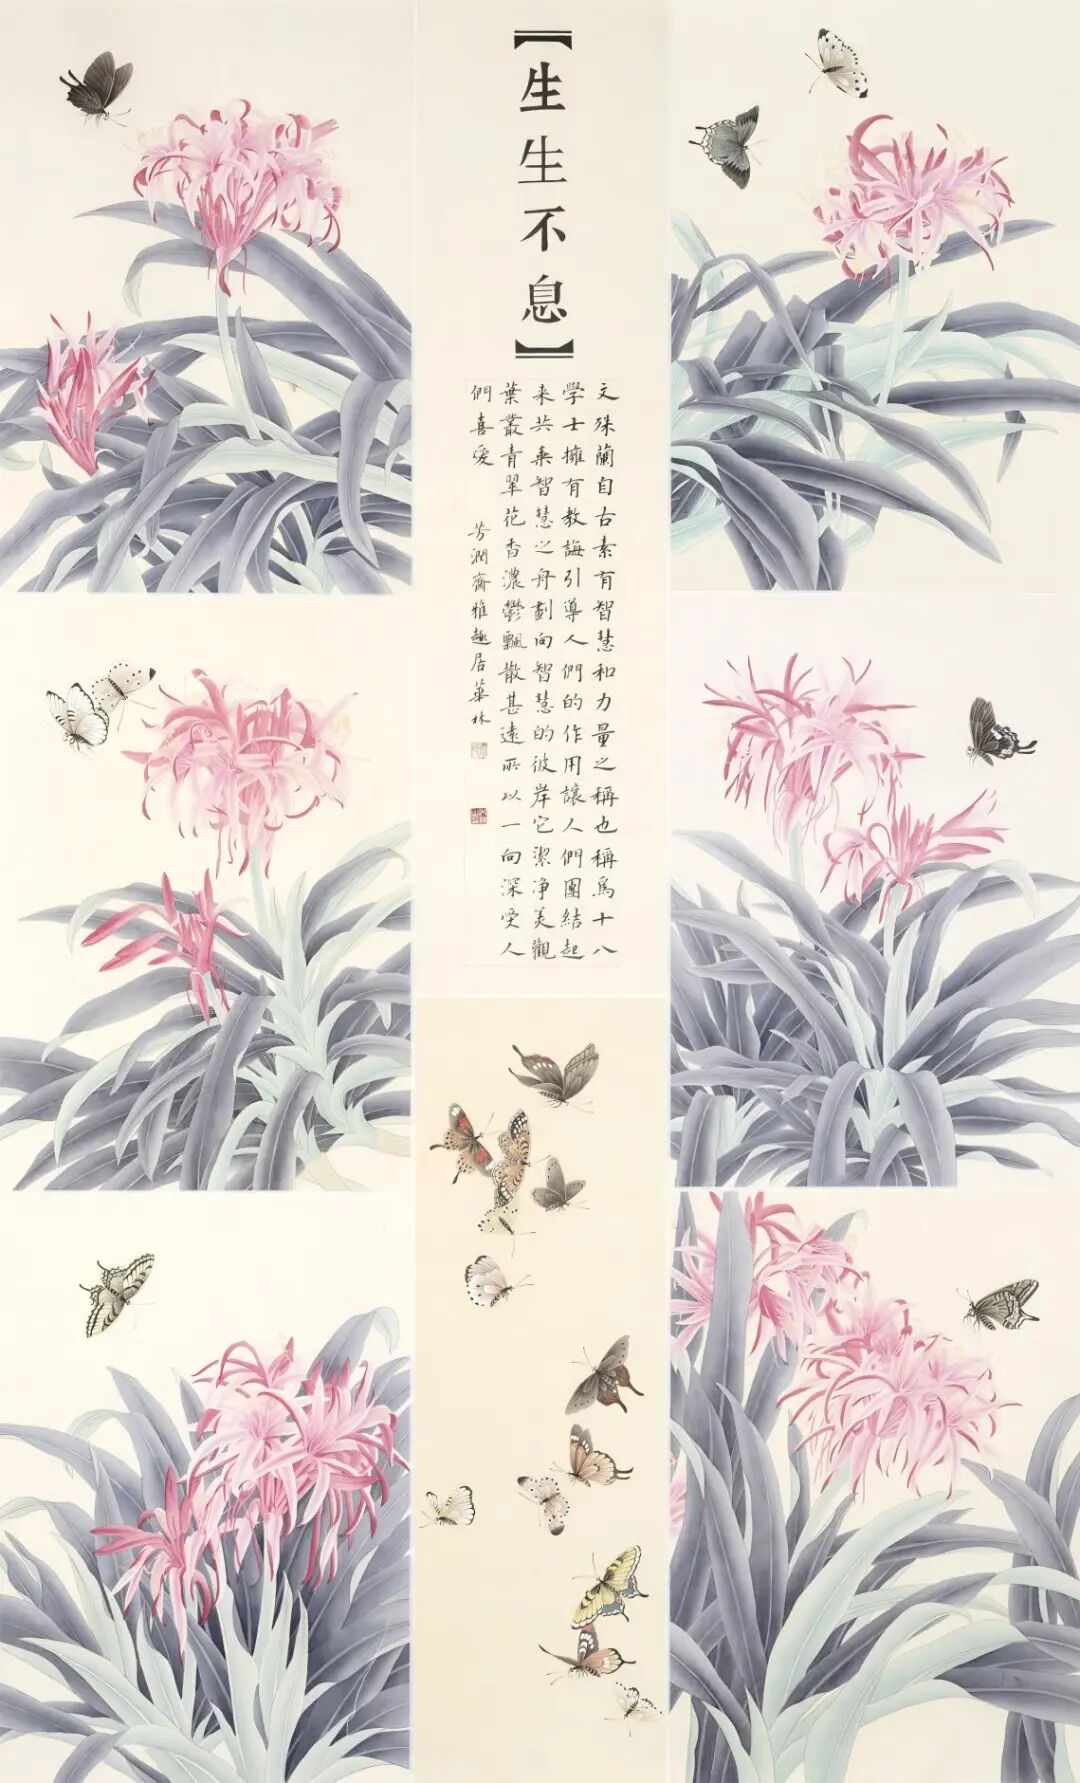 【生生不息】
文殊蘭自古素有智慧和力量之稱也稱爲十八
學士擁有教誨引導人們的作用讓人們團結起
来共乘智慧之舟劃向智慧的彼岸它潔净美觀
葉叢青翠花香濃鬱飄散甚遠所以一向深受人
們喜愛 芳潤齋雅趣居華林